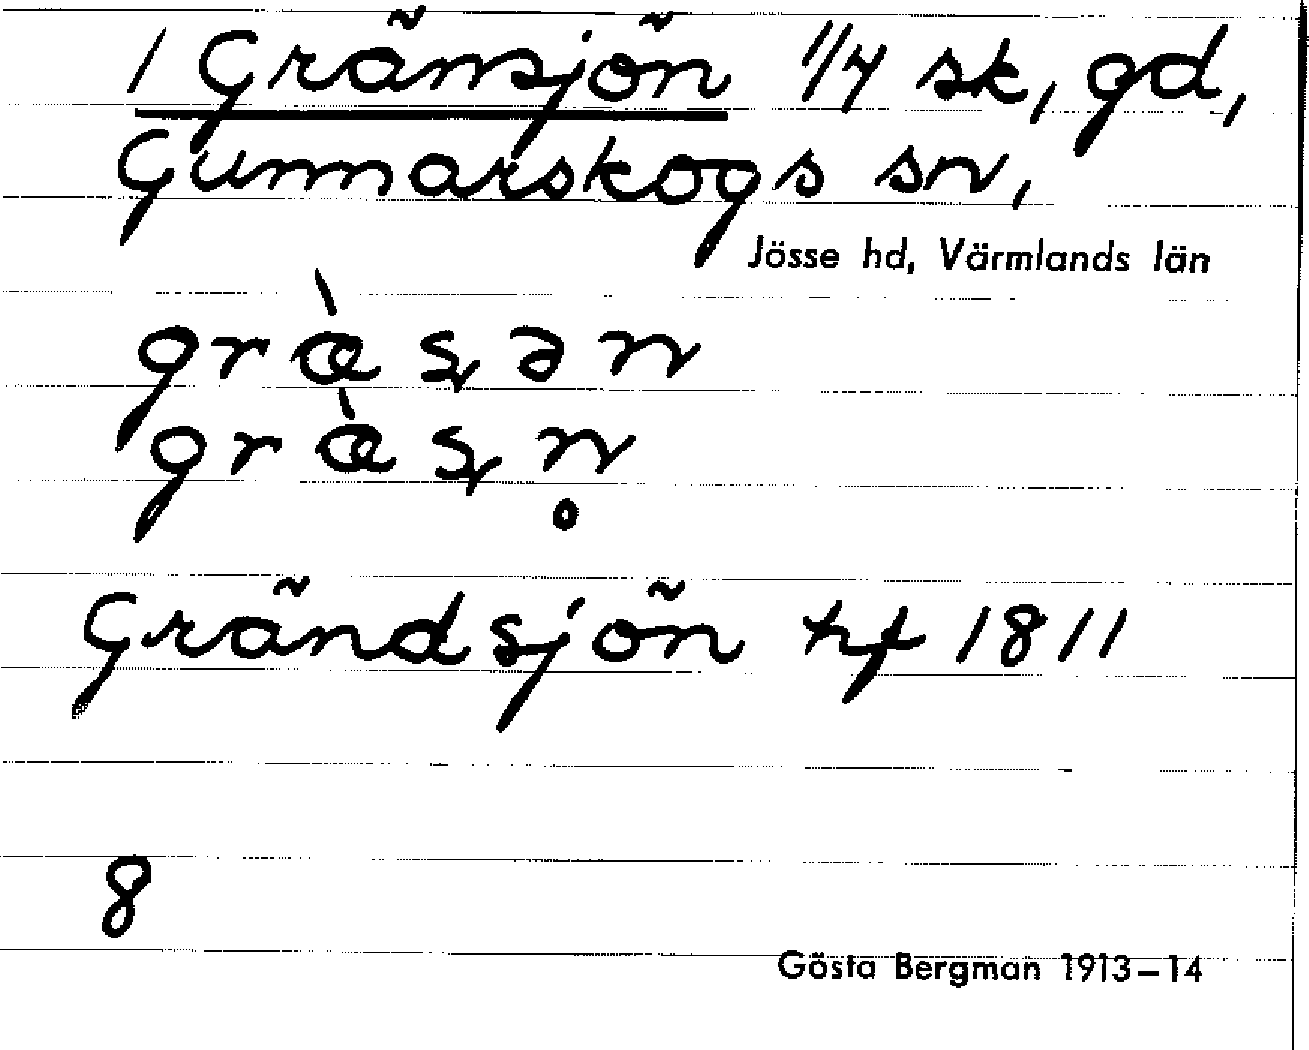 1 Gränsjön 1/4 sk, gd,
Gunnarskogs sn,
Jösse hd, Värmlands län
græ̀ʂən
græ̀ʂn̥
Grändsjön hf 1811
8
Gösta Bergman 1913–14